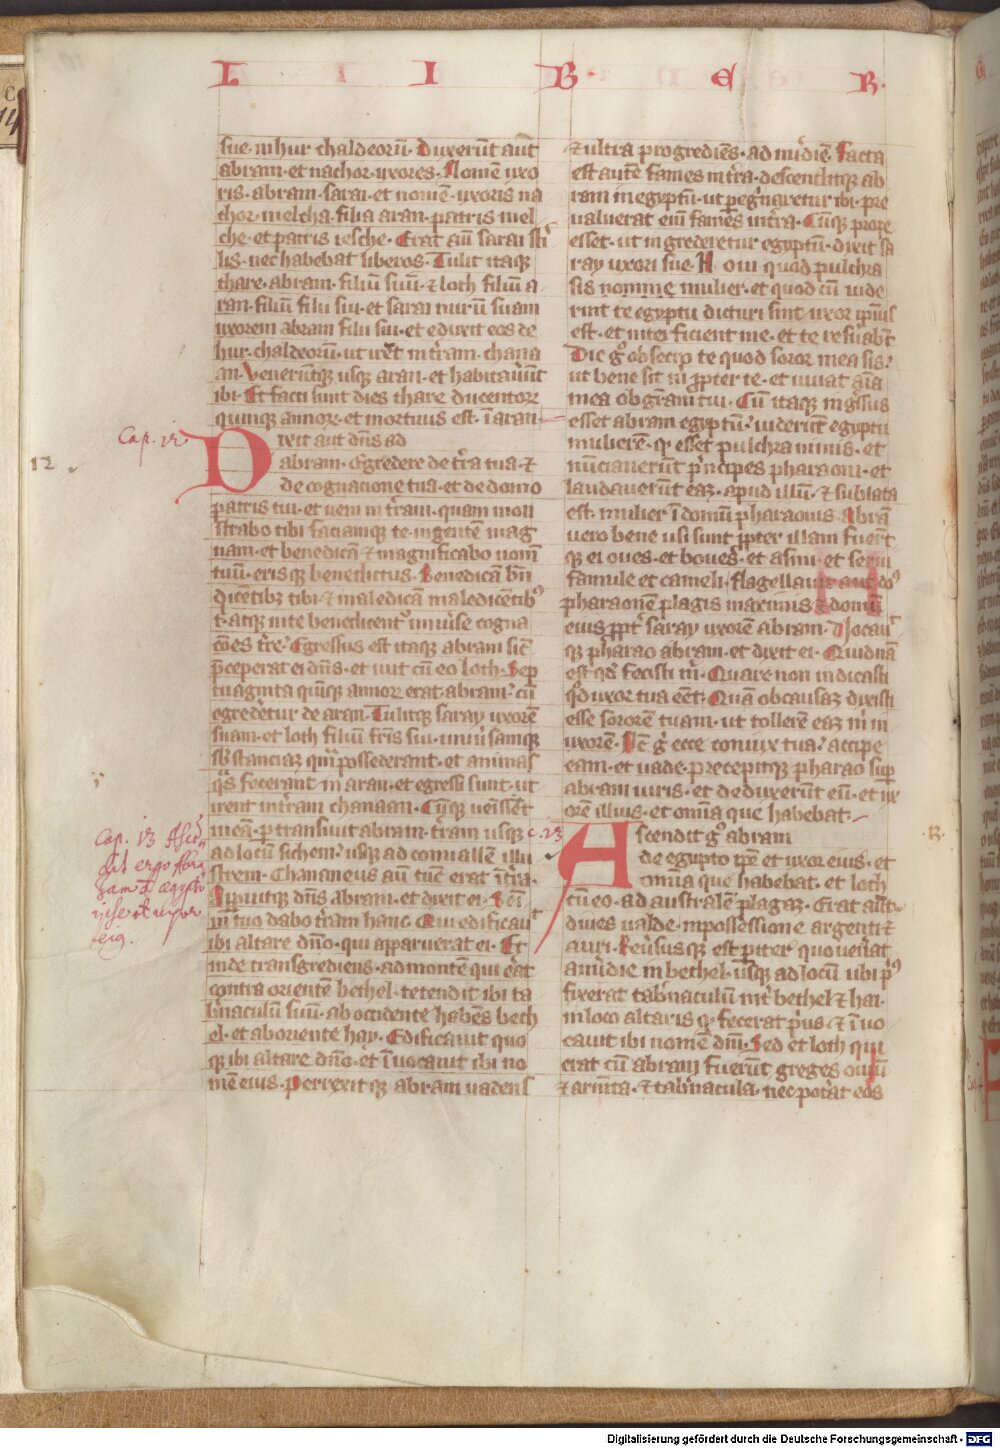 L I B E R
sue· in hur chaldeorū· Duxerūt aūt
abram· et nachor· uxores· Nomen uxo
ris· abram· sarai· et nomē· uxoris na
chor· melcha· filia aran· patris mel
che· et patris iesche· Erat aū sarai steri
lis· nec habebat liberos· Tulit itaqȝ
thare· abram· filiū suū· ⁊ loth filiū a
ran· filiū filii sui· et sarai nurū suam
uxorem abram filii sui· et eduxit eos de
hur· chaldeorū· ut irēt in t̄ram· chana
an· Venerūtqȝ usqȝ aran· et habitauūt
ibi· Et facti sunt dies thare ducentorꝝ
quinqȝ annorꝝ· et mortuus est· ī aran
Cap. 12
12
Dixit aut dn̄s ad
abram· Egredere de t̄ra tua· ⁊
de cognacione tua· et de domo
patris tui· et ueni in t̄ram· quam mon
strabo tibi faciamqȝ te· in gentē mag
nam· et benedicā ⁊ magnificabo nomē
tuū· erisqȝ benedictus· Benedicā bn̄
dicētibȝ tibi· ⁊ maledicā maledicētibȝ
t· atqȝ in te benedicent· uniuerse cogna
cōes t̄re· Egressus est itaqȝ abram sic̄
p̄ceperat ei dn̄s· et iuit cū eo loth· Sep
tuaginta quīqȝ annorꝝ erat abram· cū
egredēr̄etur de aran· Tulitqȝ saray uxorē
suam· et loth filiū fr̄is sui· uniūsamqȝ
sb̄stanciaȝ quā possederant· et animas
qȧs fecerant in aran· et egressi sunt· ut
irent in t̄ram chanaan· Cūqȝ uenissēt
in eā· p̄transiuit abram· t̄ram usqȝ
ad locū sichem· usqȝ ad conuallē illu
strem· Chananeus aū tūc erat ī t̄ra·
Apparuitqȝ dn̄s abram· et dixit ei· Semī
ni tuo dabo t̄ram hanc· Qui edificauit
ibi altare dn̄o· qui apparuerat ei· Et
inde transgrediens· ad montē qui erat
contra orientē bethel· tetendit ibi ta
b̄naculū suū· ab occidente habēs beth
el· et ab oriente hay· Edificauit quo
qȝ ibi altare dn̄o· et īuocauit ibi no
mē eius· Perrexitqȝ abram uadens
Cap. 13 Ascen
dit ergo Abra
ham de ægypto
ipse et uxor
eius.
⁊ ultra progrediēs· ad m̄idiē· Facta
est autē fames in t̄ra· descenditqȝ ab
ram in egyptū· ut peḡnaretur ibi· pre
ualuerat enī famēs in t̄ra· Cūqȝ prope
esset· ut ingrederetur egyptū· dixit sa
ray uxori sue· Noui quod pulchra
sis nomine mulier· et quod cū uide
rint te egyptii dicturi sunt· uxor ipsius
est· et interficient me· et te reseruabūt
Dic ḡ obsecro te quod soror mea sis·
ut bene sit m̄ ꝓpter te· et uiuat aīa
mea ob gr̄am tui· Cū itaqȝ ingressus
esset abram egyptū· uiderūt egyptii
mulierē· qȝ esset pulchra nimis· et
nūciauerūt p̄ncipes pharaoni· et
laudauerūt eaȝ· apud illū· ⁊ sublata
est· mulier ī domū pharaonis· Abrā
uero bene usi sunt ꝓpter illam· fuerūt
qȝ ei oues· et boues· et asini· et serui
famule et cameli· flagellauit aut dn̄s
pharaonē plagis maximis ⁊ domū
eius ꝓpt saray uxorē abram· Uocauit
qȝ pharao abram· et dixit ei· Quidnā
est qd fecisti m̄· Quare non indicasti
qd uxor tua eēt· Quā ob causaȝ dixisti
esse sororē tuam· ut tollerē eaȝ m̄ in
uxorē· Nc̄ ḡ ecce coniux tua· accipe
eam· et uade· precepitqȝ pharao sup
abram uiris· et deduxerūt eū· et ux
orē illius· et omīa que habebat·
c. 13
Ascendit ḡ abram
de egypto ipē et uxor eius· et
omīa que habebat· et loth
cū eo· ad australē plagaȝ· Erat aūt
diues ualde· in possessione argenti ⁊
auri· Reūsusqȝ est p iter· quo uenāt
a m̄idie in bethel· usqȝ ad locū ubi pͥs
fixerat tab̄naculū int̄ bethel ⁊ hai·
in loco altaris qȝ fecerat p̄us· ⁊ īuo
cauit ibi nomē dn̄i· Sed et loth qui
erat cū abram fuerūt greges ouiū
⁊ arm̄ta· ⁊ tab̄nacula· nec poterāt eos
·13·
Digitalisierung gefördert durch die Deutsche Forschungsgemeinschaft - DFG